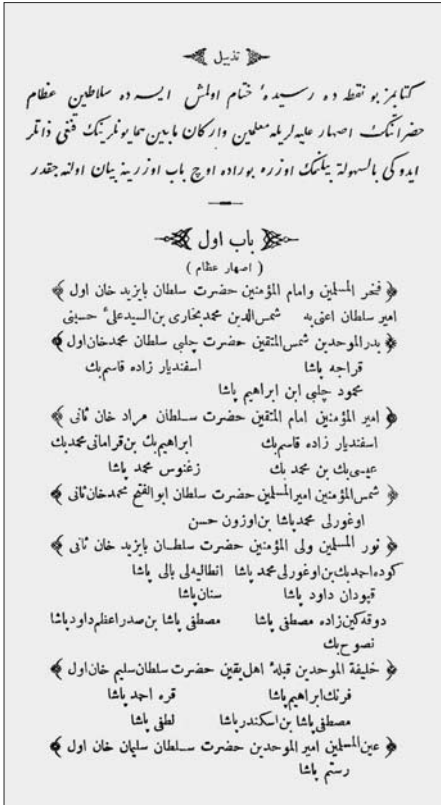 تذييل
كتابمز بو نقطه ده رسيدهٔ ختام اولمش ايسه ده سلاطين عظام
حضراتنك اصهار عليه لريله معلمين واركان مابين همايونلرينك قنغى ذاتلر
ايدوكى بالسهولة بيلنمك اوزره بوراده اوچ باب اوزرينه بيان اولنه جقدر
باب اول
( اصهار عظام )
﴿ فخر المسلمين وامام المؤمنين حضرت سلطان بايزيد خان اول ﴾
امير سلطان اعنى به شمس‌الدين محمد بخارى بن السيد على ٔ حسينى
﴿ بدر الموحدين شمس‌المتقين حضرت چلبى سلطان محمد خان اول ﴾
قراجه پاشا اسفنديار زاده قاسم بك
محمود چلبى ابن ابراهيم پاشا
﴿ امير المؤمنين امام المتقين حضرت سلطان مراد خان ثانى ﴾
اسفنديار زاده قاسم بك ابراهيم بك بن قرامانى محمد بك
عيسى بك بن محمد بك زغنوس محمد پاشا
﴿ شمس المؤمنين امير المسلمين حضرت سلطان ابو الفتح محمد خان ثانى ﴾
اوغورلى محمد پاشا بن اوزون حسن
﴿ نور المسلمين ولى المؤمنين حضرت سلطان بايزيد خان ثانى ﴾
كوده احمد بك بن اوغورلى محمد پاشا انطاليه لى بالى پاشا
قپودان داود پاشا سنان پاشا
دوقه كين زاده مصطفى پاشا مصطفى پاشا بن صدر اعظم داود پاشا
نصوح بك
﴿ خليفة الموحدين قبلهٔ اهل يقين حضرت سلطان سليم خان اول ﴾
فرنك ابراهيم پاشا قره احمد پاشا
مصطفى پاشا بن اسكندر پاشا لطفى پاشا
﴿ عين المسلمين امير الموحدين حضرت سلطان سليمان خان اول ﴾
رستم پاشا